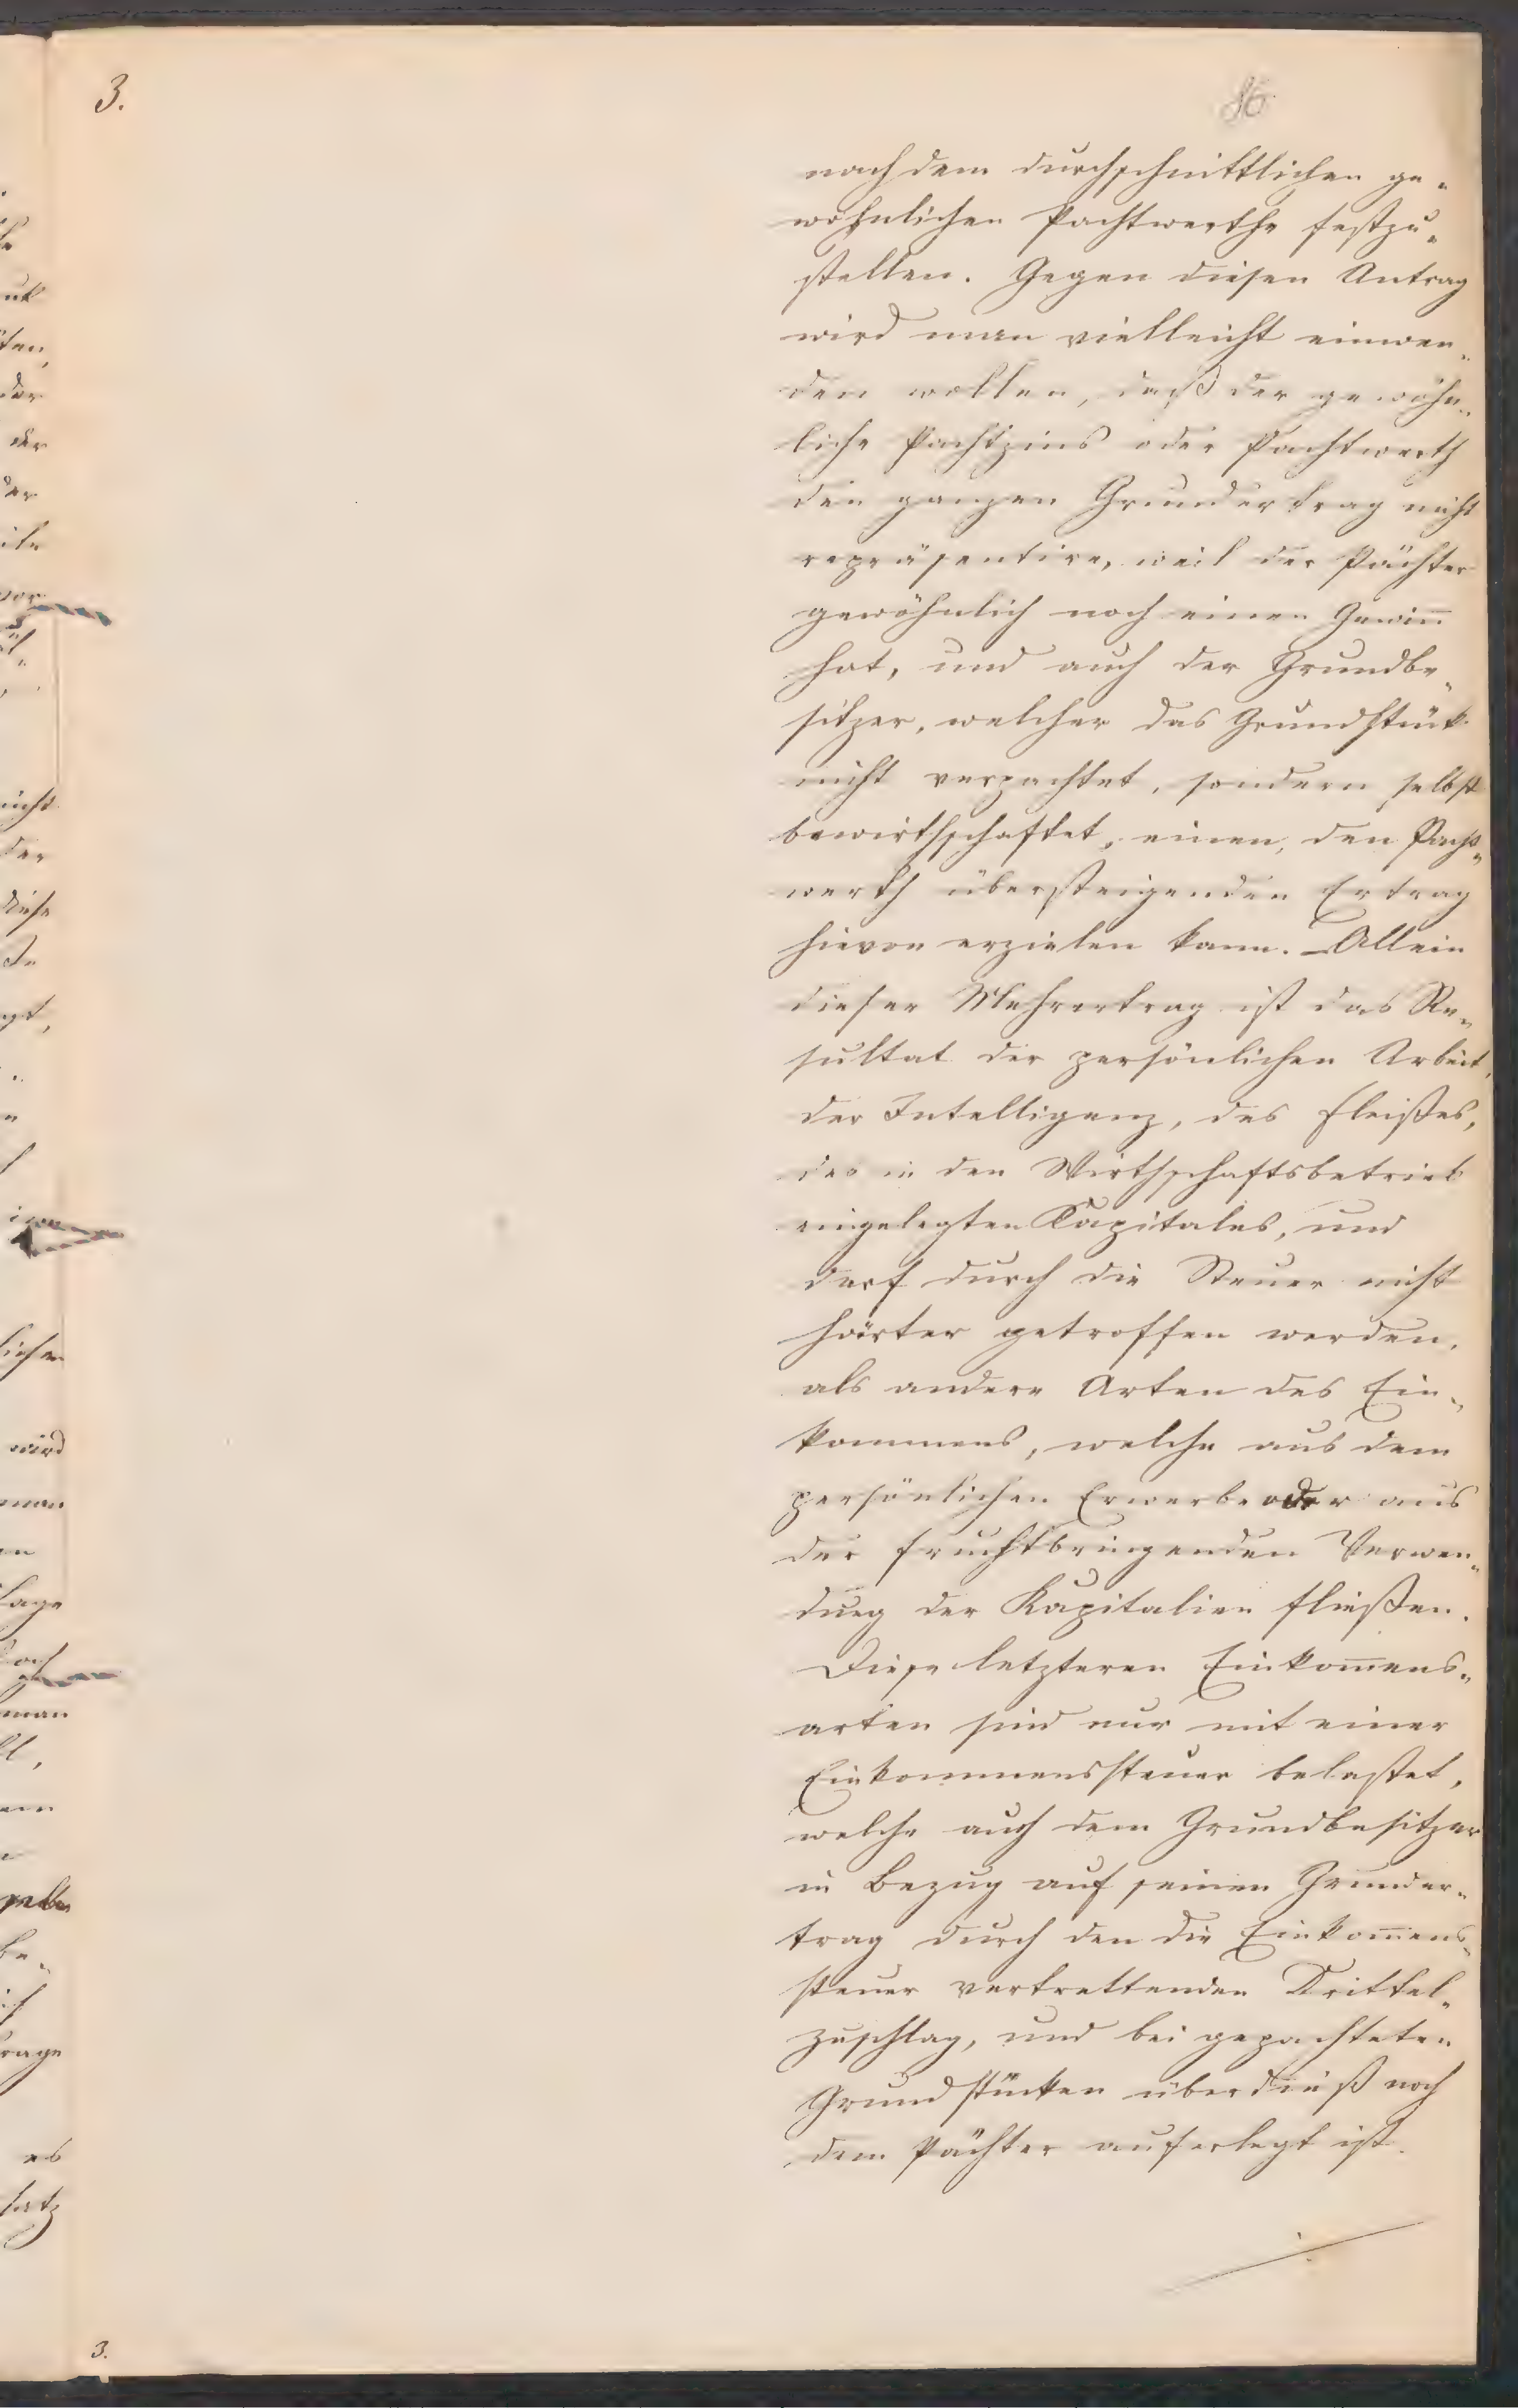 3.
86
nach dem durchschnittlichen ge„
wöhnlichen Pachtwerthe festzu„
stellen. Gegen diesen Antrag
wird man vielleicht einwen„
den wollen, daß der gewöhn„
liche Pachtzins oder Pachtwerth
den ganzen Grundertrag nicht
repräsentire, weil der Pächter
gewöhnlich noch einen Gewin̅
hat, und auch der Grundbe„
sitzer, welcher das Grundstük
nicht verpachtet, sondern selbst
bewirthschaftet, einen, den Pacht„
werth übersteigenden Ertrag
hievon erzielen kann. Allein
dieser Mehrertrag ist das Re„
sultat der persönlichen Arbeit,
der Intelligenz, des Fleißes,
des in den Wirthschaftsbetrieb
eingelegten Kapitales, und
darf durch die Steuer nicht
härter getroffen werden,
als andere Arten des Ein„
kommens, welche aus dem
persönlichen Erwerbe oder aus
der fruchtbringenden Verwen„
dung der Kapitalien fließen.
Diese letzteren Einkom̅ens„
arten sind nur mit einer
Einkommenssteuer belastet,
welche auch dem Grundbesitzer
in Bezug auf seinen Grunder„
trag durch den die Einkom̅ens„
steuer vertrettenden Drittel„
zuschlag, und bei gepachteten
Grundstücken überdieß noch
dem Pächter auferlegt ist.
3.